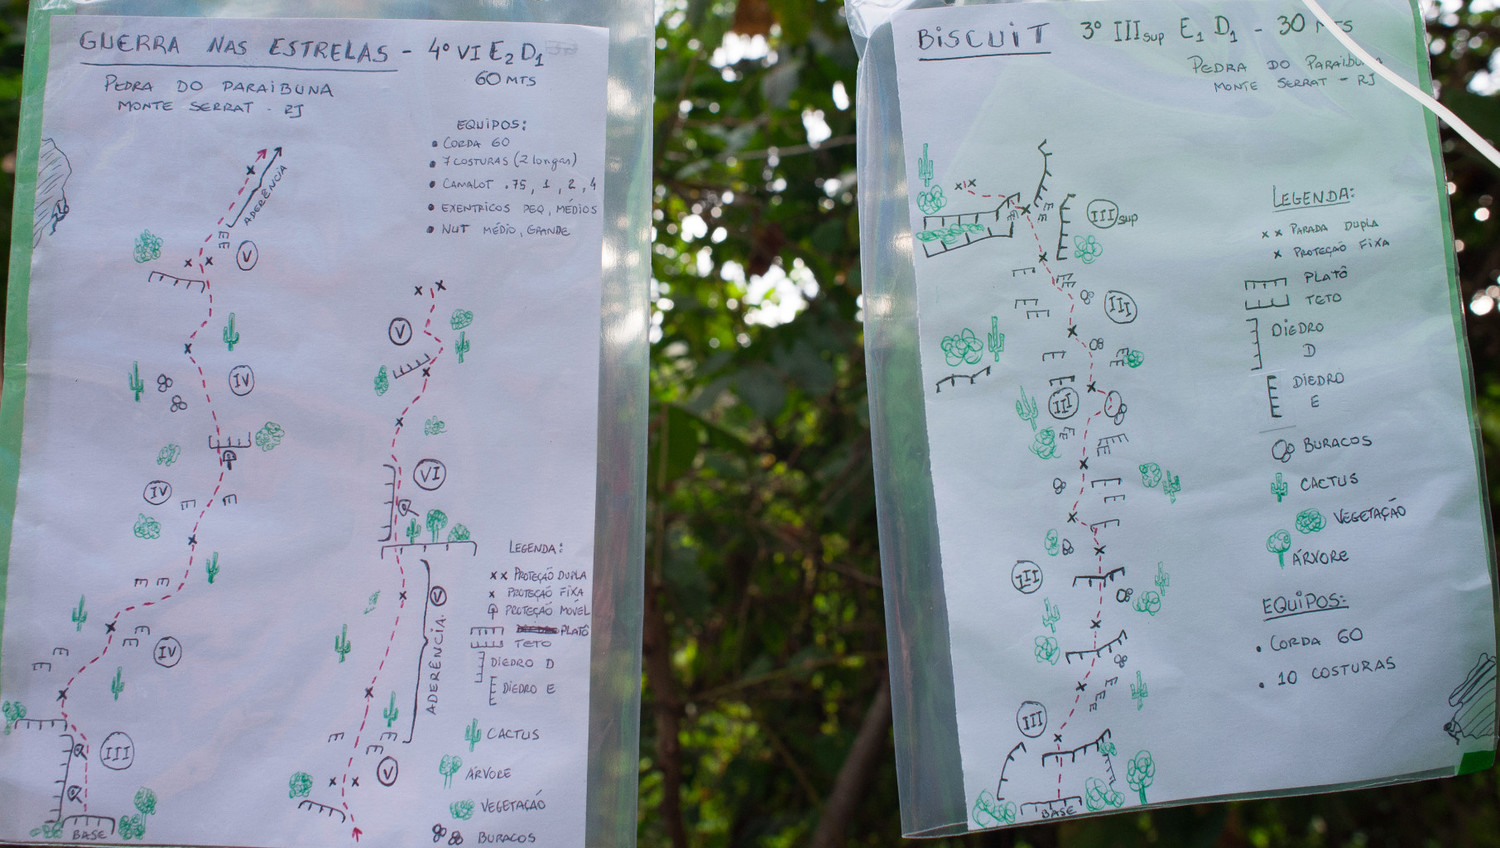 GUERRA NAS ESTRELAS - 4º VI E2 D1
60 MTS
PEDRA DO PARAIBUNA
MONTE SERRAT - RJ
EQUIPOS:
• CORDA 60
• 7 COSTURAS (2 longas)
• CAMALOT .75, 1, 2, 4
• EXENTRICOS PEQ, MÉDIOS
• NUT MÉDIO, GRANDE
ADERÊNCIA
V
IV
IV
IV
III
BASE
V
VI
ADERÊNCIA. V
V
LEGENDA:
x x PROTEÇÃO DUPLA
x PROTEÇÃO FIXA
PROTEÇÃO MOVEL
PLATÔ
TETO
DIEDRO D
DIEDRO E
CACTUS
ÁRVORE
VEGETAÇÃO
BURACOS
BISCUIT 3º IIIsup E1 D1 - 30 MTS
PEDRA DO PARAIBUNA
MONTE SERRAT - RJ
IIIsup
III
III
III
III
BASE
LEGENDA:
x x PARADA DUPLA
x PROTEÇÃO FIXA
PLATÔ
TETO
DIEDRO
D
DIEDRO
E
BURACOS
CACTUS
VEGETAÇÃO
ÁRVORE
EQUIPOS:
• CORDA 60
• 10 COSTURAS